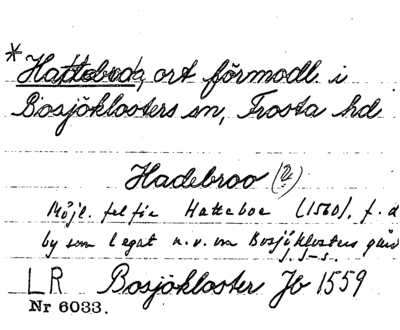 *Hattebro, ort förmodl. i
Bosjöklosters sn, Frosta hd
Hadebroo (?)
Möjl. fel för Hatteboe (1560), f. d.
by som legat n. v. om Bosjöklosters
LR Bosjökloster Jb 1559
Nr 6033.